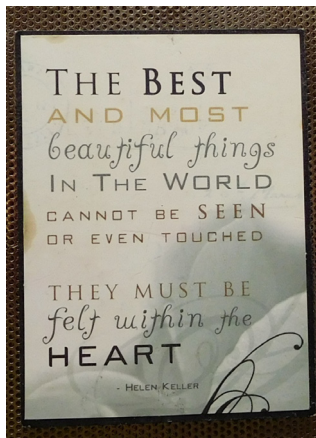 THE BEST
AND MOST
beautiful things
IN THE WORLD
CANNOT BE SEEN
OR EVEN TOUCHED
THEY MUST BE
felt within the
HEART
- HELEN KELLER